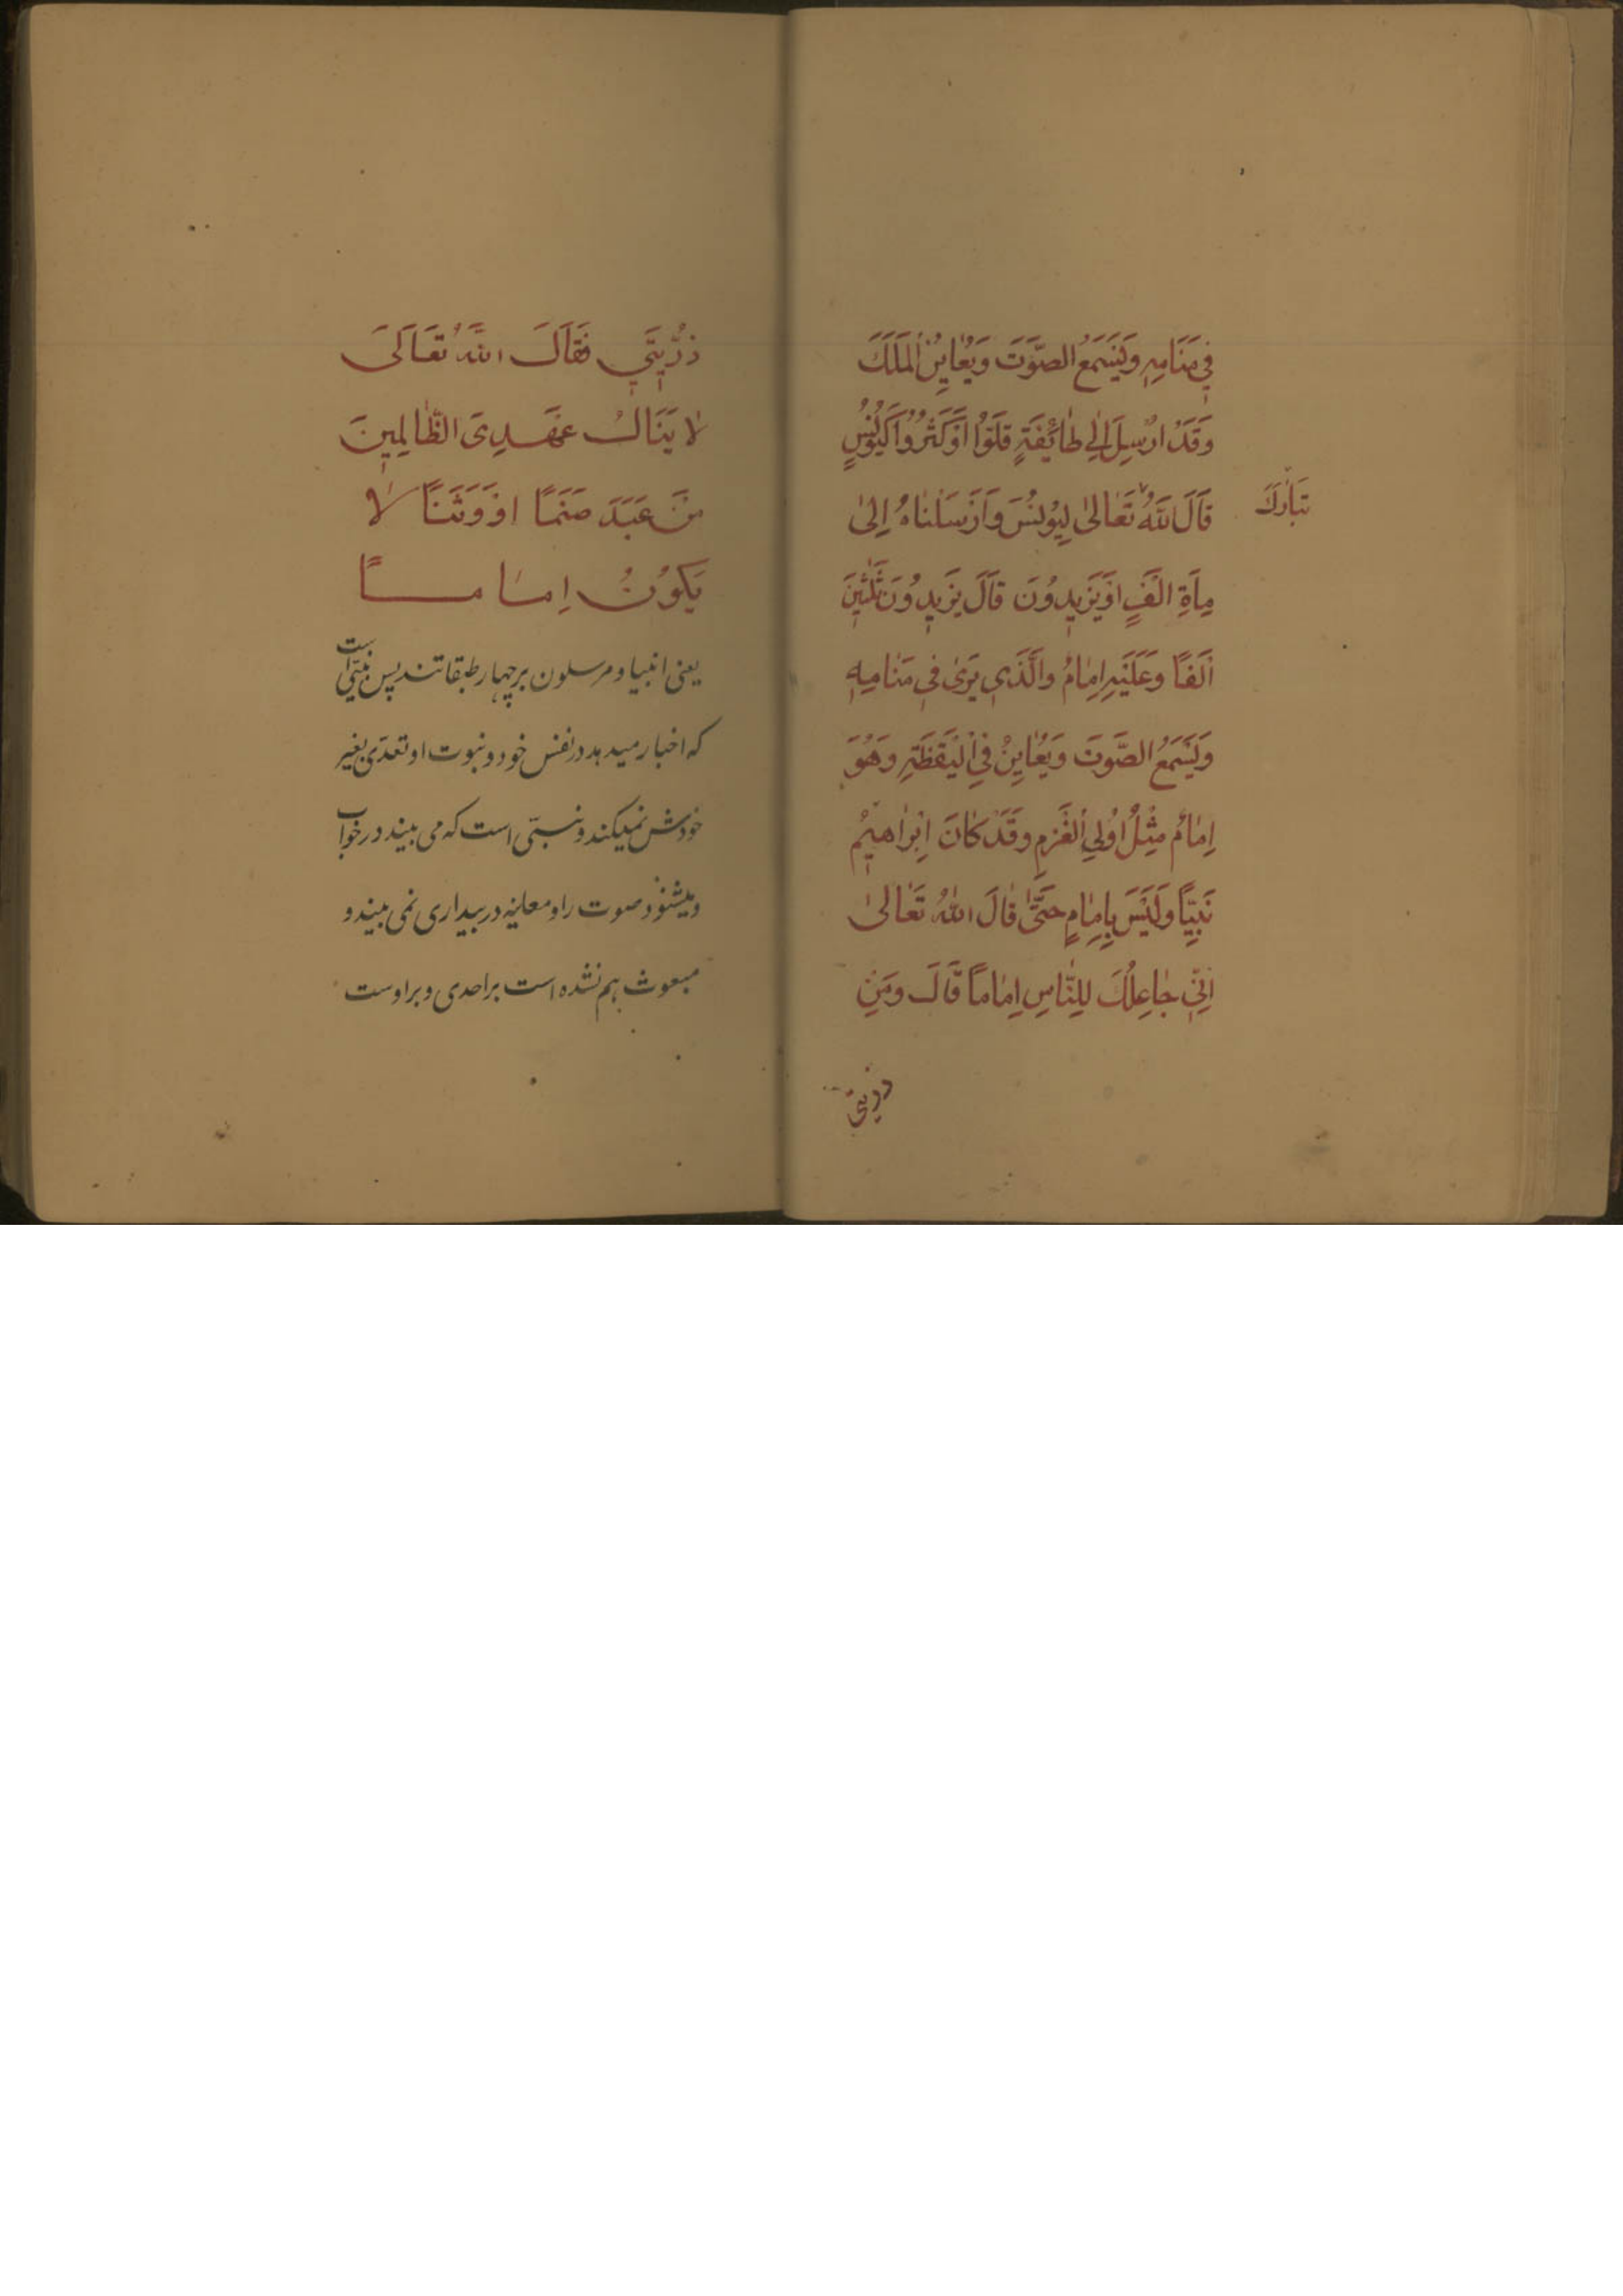 فِي مَنَامِهِ وَيَسْمَعُ الصَّوْتَ وَيُعَايِنُ الْمَلَكَ
وَقَدْ اُرْسِلَ اِلٰي طٰائِفَةٍ قَلَّوْا اَوْ كَثُرُوا كَيُونُسٍ
قَالَ اللهُ تَعٰالىٰ لِيُونُسَ وَاَرْسَلْنٰاهُ اِلىٰ
تَبٰارَكَ
مِاَةِ اَلْفٍ اَوْ يَزِيدُونَ قَالَ يَزِيدُونَ ثَلٰثِينَ
اَلْفًا وَعَلَيْهِ اِمٰامٌ وَالَّذِي يَرىٰ فِي مَنٰامِهِ
وَيَسْمَعُ الصَّوْتَ وَيُعٰايِنُ فِي الْيَقْظَةِ وَهُوَ
اِمٰامٌ مِثْلُ اُولِي الْعَزْمِ وَقَدْ كٰانَ اِبْرٰاهِيمُ
نَبِيًّا وَلَيْسَ بِاِمٰامٍ حَتّٰى قٰالَ اللهُ تَعٰالىٰ
اِنِّي جٰاعِلُكَ لِلنّٰاسِ اِمٰامًا قَالَ وَمِنْ
ذريتي
ذُرِّيَّتِي فَقَالَ اللهُ تَعَالَى
لٰا يَنَالُ عَهْدِى الظّٰالِمِينَ
مَنْ عَبَدَ صَنَمًا اَوْ وَثَنًا لٰا
يَكُونُ اِمَامًا
يعنى انبيا و مرسلون بر چهار طبقاتند پس نبيّى است
كه اخبار ميدهد در نفس خود و نبوت او تعدّى بغير
خودش نميكند و نبىّ است كه مى بيند در خواب
و ميشنود صوت را و معاينه در بيدارى نمى بيند و
مبعوث هم نشده است بر احدى و بر اوست